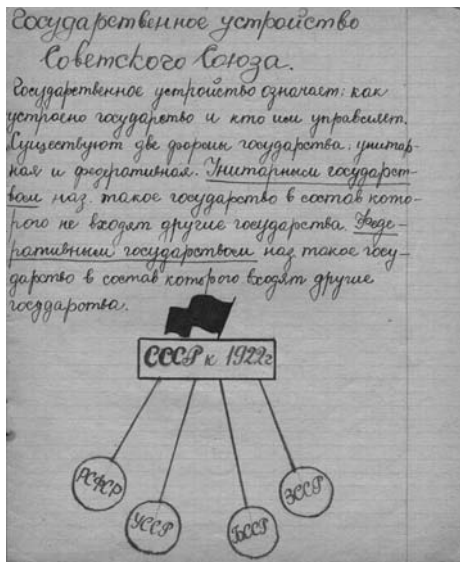 Государственное устройство
Советского Союза.
Государственное устройство означает: как
устроено государство и кто им управляет.
Существуют две формы государства: унитар-
ная и федеративная. Унитарным государст-
вом наз. такое государство в состав кото-
рого не входят другие государства. Феде-
ративным государством наз. такое госу-
дарство в состав которого входят другие
государства.
СССР к 1922г
РСФСР
УССР
БССР
ЗССР